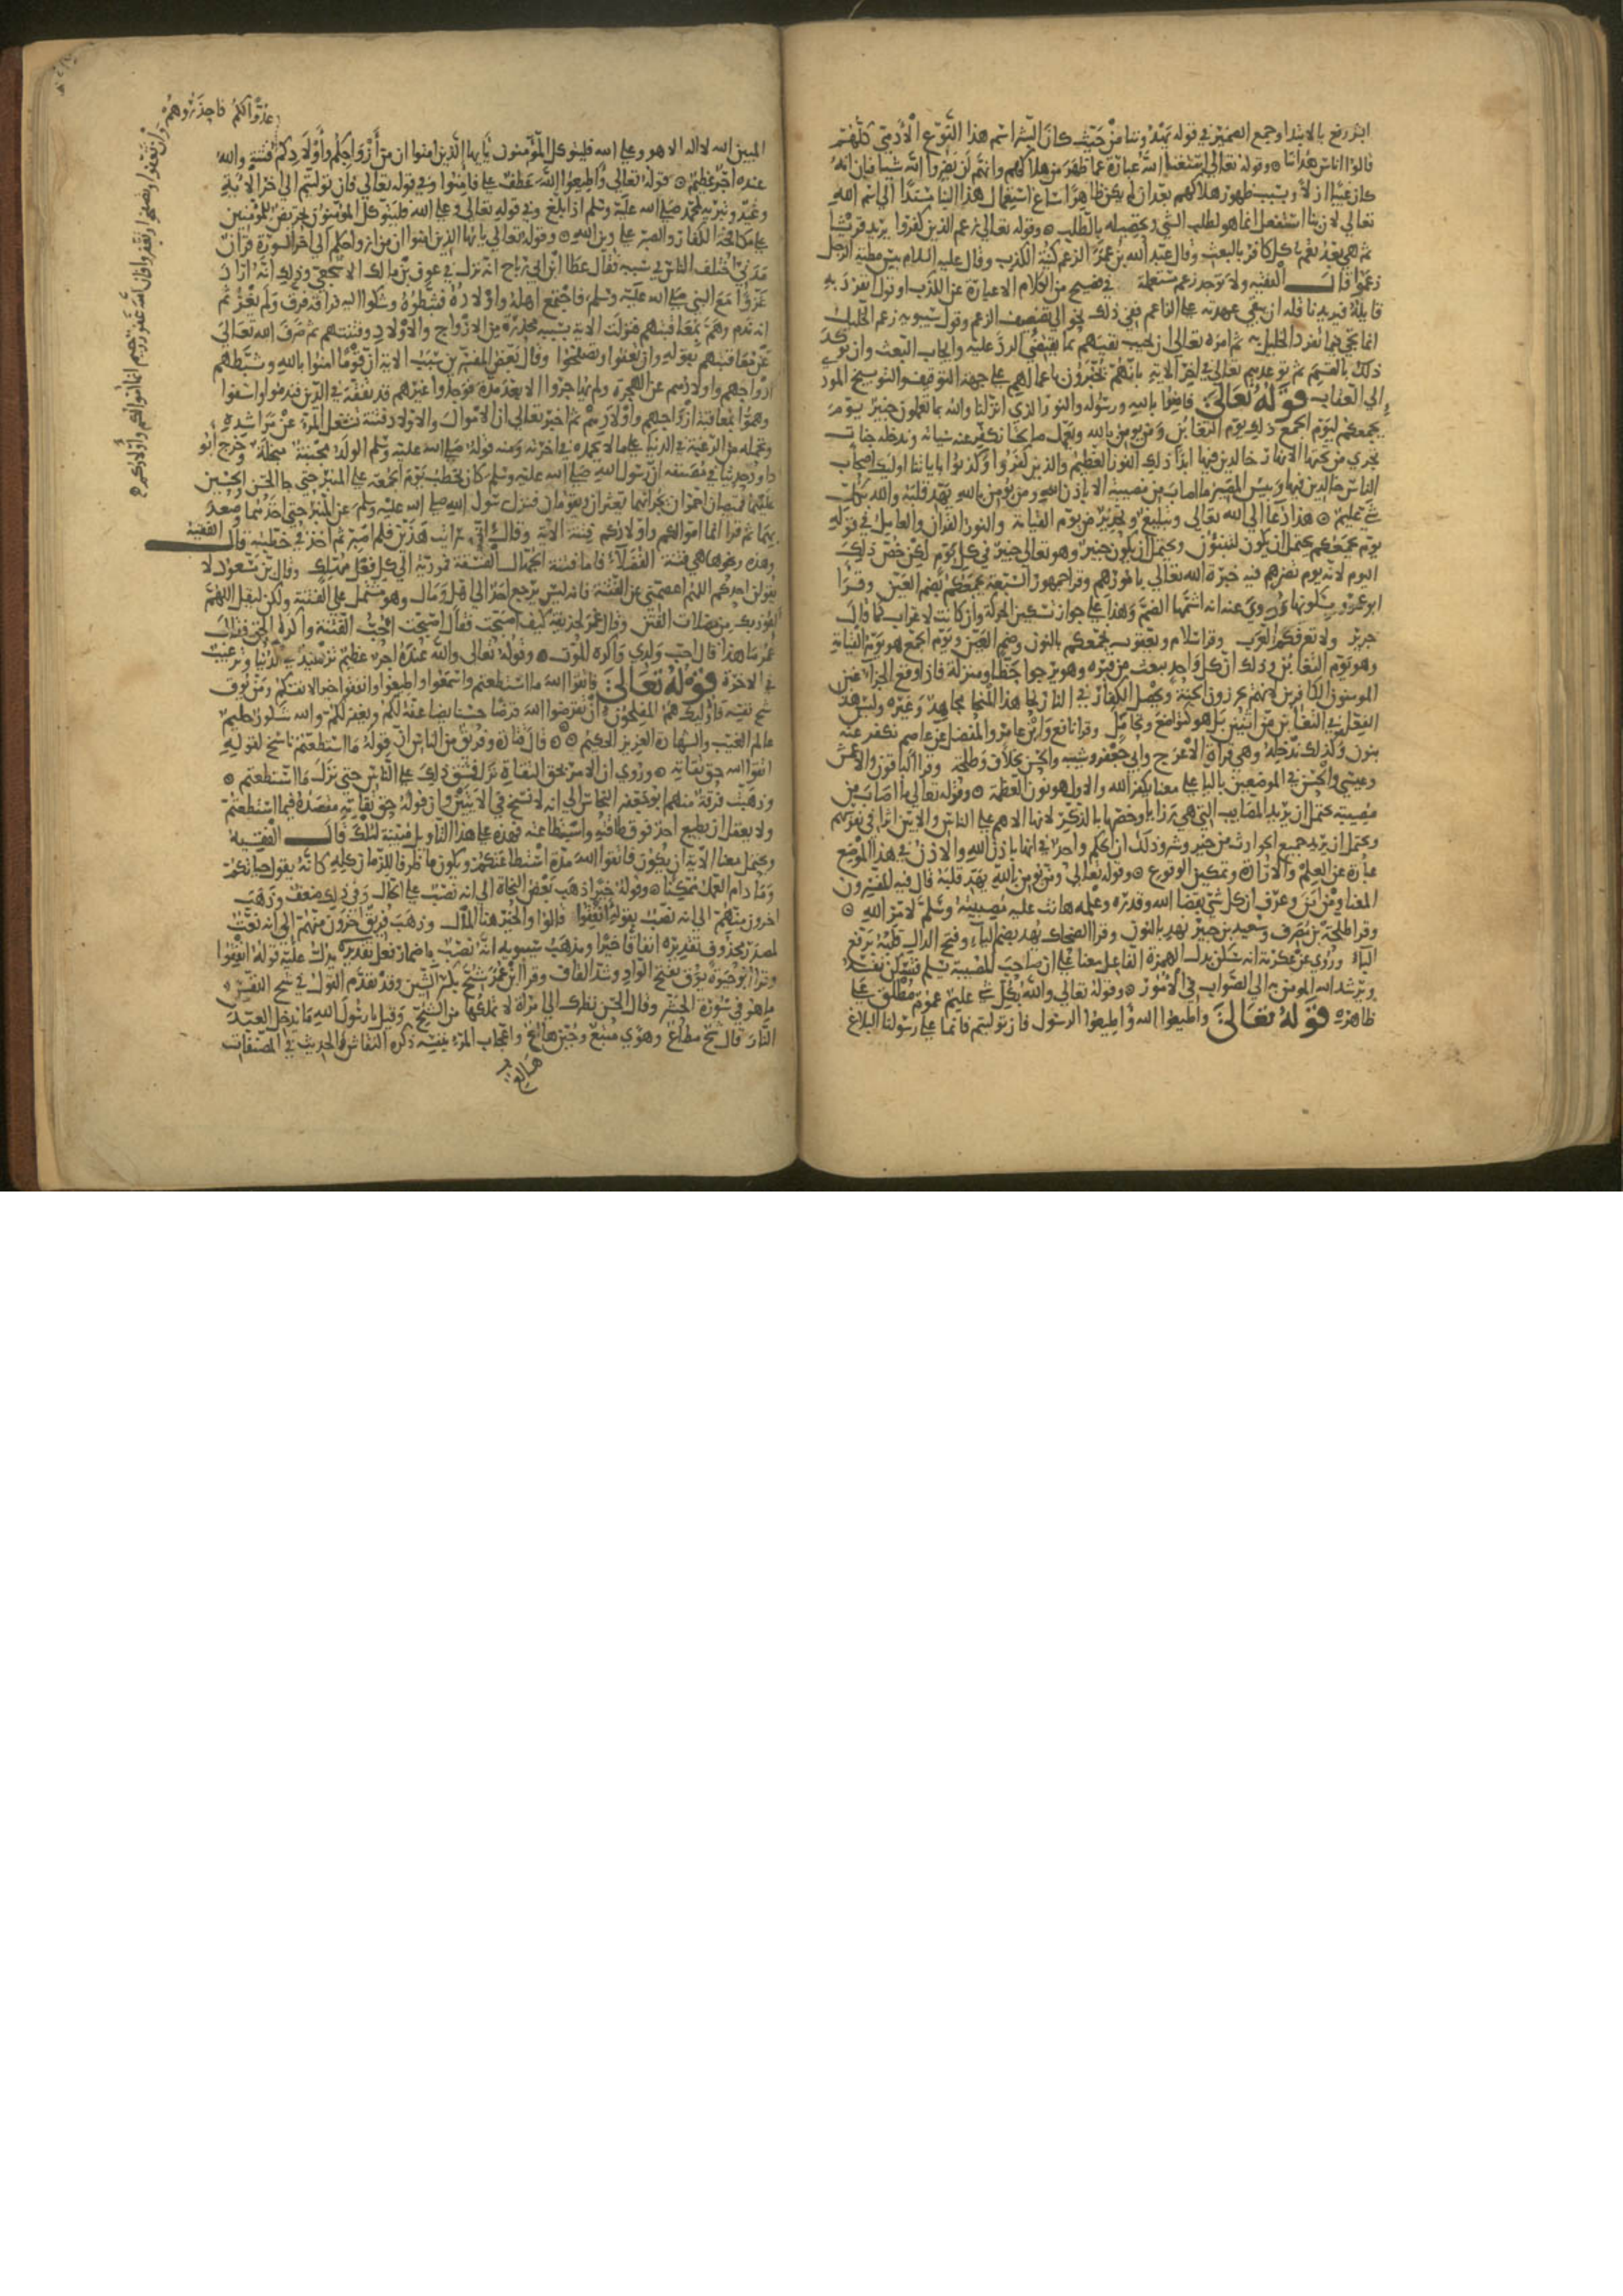 ابشر رفع بالابتدا وجمع الضمير في قوله يهدوننا من حيث كان البشر اسم هذا النوع الادمي كلهم
قالوا اناس هداتنا وقوله تعالى استغنى الله عبارة عما ظهر من هلاكهم وانهم لن يضروا الله شيا فبان انه
كان غنيا ازلا وبسبب ظهور هلاكهم بعد ان لم يكن ظاهرا ساغ استعمال هذا البنا مسندا الى اسم الله
تعالى لان بنا استفعل انما هو لطلب الشي وتحصيله بالطلب وقوله تعالى زعم الذين كفروا يريد قريشا
ثم هي بعد تعم كل كافر بالبعث وقال عبد الله بن عمر الزعم كنية الكذب وقال عليه السلام بيس مطية الرجل
زعموا قال الفقيه ولا توجد زعم مستعملة في فصيح من الكلام الا عبارة عن الكذب او قول انفرد به
قايله فيريد ناقله ان يبقي عهدته على الزاعم ففي ذلك ما ينحو الى تضعيف الزعم وقول سيبويه زعم الخليل
انما يجي فيما انفرد الخليل به ثم امره تعالى ان يجيب نفيهم بما يقتضي الرد عليه وايجاب البعث وان يوكد
ذلك بالقسم ثم توعدهم تعالى في اخر الاية بانهم يخبرون باعمالهم على جهة التوقيف والتوبيخ المودي
الى العقاب قوله تعالى فامنوا بالله ورسوله والنور الذي انزلنا والله بما تعملون خبير يوم
يجمعكم ليوم الجمع ذلك يوم التغابن ومن يومن بالله ويعمل صالحا نكفر عنه سياته وندخله جنات
تجري من تحتها الانهار خالدين فيها ابدا ذلك الفوز العظيم والذين كفروا وكذبوا باياتنا اوليك اصحاب
النار خالدين فيها وبيس المصير ما اصاب من مصيبة الا باذن الله ومن يومن بالله يهد قلبه والله بكل
شي عليم هذا دعا الى الله تعالى وتبليغ وتحذير من يوم القيامة والنور القران والعامل في قوله
يوم يجمعكم يحتمل ان يكون لتنبؤن ويحتمل ان يكون خبير وهو تعالى خبير في كل يوم لكن خص ذلك
اليوم لانه يوم تضرهم فيه خبرة الله تعالى بامورهم وقرا جمهور السبعة يجمعكم بضم العين وقرا
ابو عمرو بسكونها وروي عنه انه اشمها الضم وهذا على جواز تسكين الحركة وان كانت لاعراب كما قال
جرير ولا تعرفكم العرب وقرا سلام ويعقوب نجمعكم بالنون وضم العين ويوم الجمع هو يوم القيامة
وهو يوم التغابن وذلك ان كل واحد يبعث من قبره وهو يرجوا حظا ومنزلة فاذا وقع الجزا غبن
المومنون الكافرين لانهم يحوزون الجنة ويحصل الكفار في النار نحا هذا المنحا مجاهد وغيره وليس هذا
الفعل في التغابن من اثنين بل هو كتواضع وتحامل وقرا نافع وابن عامر والمفضل عن عاصم نكفر عنه
بنون وكذلك ندخله وهي قراة الاعرج وابي جعفر وشيبة والحسن بخلاف وطلحة وقرا الباقون والاعمش
وعيسى والحسن في الموضعين باليا على معنى يكفر الله والاول هو نون العظمة وقوله تعالى ما اصاب من
مصيبة يحتمل ان يريد المصايب التي هي رزايا وخصها بالذكر لانها الاهم على الناس والابين اثرا في نفوسهم
ويحتمل ان يريد جميع الحوادث من خير وشر وذلك ان الحكم واحد في انها باذن الله والاذن في هذا الموضع
عبارة عن العلم والارادة وتمكين الوقوع وقوله تعالى ومن يومن بالله يهد قلبه قال فيه المفسرون
المعنى ومن امن وعرف ان كل شي بقضا الله وقدره وعلمه هانت عليه مصيبته وسلم لامر الله
وقرا طلحة بن مصرف وسعيد بن جبير نهد بالنون وقرا الضحاك يهد بضم الياء وفتح الدال قلبه برفع
الباء وروي عن عكرمة انه سكن بدل الهمزة الفا على معنى ان صاحب المصيبة يسلم فتسكن نفسه
ويرشد الله المومن به الى الصواب في الامور وقوله تعالى والله بكل شي عليم عموم مطلق على
ظاهره قوله تعالى واطيعوا الله واطيعوا الرسول فان توليتم فانما على رسولنا البلاغ
المبين الله لا اله الا هو وعلى الله فليتوكل المومنون يا ايها الذين امنوا ان من ازواجكم واولادكم فتنة والله
عدوا لكم فاحذروهم
وان تعفوا وتصفحوا وتغفروا فان الله غفور رحيم انما اموالكم واولادكم
عنده اجر عظيم قوله تعالى واطيعوا الله عطف على فامنوا وفي قوله تعالى فان توليتم الى اخر الاية
وعيد وتبرية لمحمد صلى الله عليه وسلم اذا بلغ وفي قوله تعالى وعلى الله فليتوكل المومنون تحريض للمومنين
على مكافحة الكفار والصبر على دين الله وقوله تعالى يا ايها الذين امنوا ان من ازواجكم الى اخر السورة قران
مدني اختلف الناس في سببه فقال عطا ابن ابي رباح انه نزل في عوف بن مالك الاشجعي وذلك انه اراد
غزوا مع النبي صلى الله عليه وسلم فاجتمع اهله واولاده فثبطوه وشكوا اليه فراقه فرق ولم يغز ثم
انه ندم وهم بمعاقبتهم فنزلت الاية بسببه محذرة من الازواج والاولاد وفتنتهم ثم صرف الله تعالى
عن معاقبتهم بقوله وان تعفوا وتصفحوا وقال بعض المفسرين سبب الاية ان قوما امنوا بالله وثبطهم
ازواجهم واولادهم عن الهجرة ولم يهاجروا الا بعد مدة فوجدوا غيرهم قد تفقه في الدين فندموا واسفوا
وهموا بمعاقبة ازواجهم واولادهم ثم اخبر تعالى ان الاموال والاولاد فتنة تشغل المرء عن مراشده
وتحمله من الرغبة في الدنيا على ما لا يحمده في اخرته ومنه قوله صلى الله عليه وسلم الولد مجبنة مبخلة وخرج ابو
داود حديثا في مصنفه ان رسول الله صلى الله عليه وسلم كان يخطب يوم الجمعة على المنبر حتى جا الحسن والحسين
عليهما قميصان احمران يجرانهما يعثران ويقومان فنزل رسول الله صلى الله عليه وسلم عن المنبر حتى اخذهما وصعد
بهما ثم قرا انما اموالكم واولادكم فتنة الاية وقال اني رايت هذين فلم اصبر ثم اخذ في خطبته قال الفقيه
وهذه ونحوها هي فتنة الفضلاء فاما فتنة الجهال الفسقة فمودية الى كل فعل مهلك وقال بن مسعود لا
يقولن احدكم اللهم اعصمني عن الفتنة فانه ليس يرجع احد الى اهل ومال وهو مشتمل على الفتنة ولكن ليقل اللهم
اعوذ بك من مضلات الفتن وقال عمر لحذيفة كيف اصبحت فقال اصبحت احب الفتنة واكره الحق فقال
عمر ما هذا قال احب ولدي واكره الموت وقوله تعالى والله عنده اجر عظيم تزهيد في الدنيا وترغيب
في الاخرة قوله تعالى فاتقوا الله ما استطعتم واسمعوا واطيعوا وانفقوا خيرا لانفسكم ومن يوق
شح نفسه فاوليك هم المفلحون ان تقرضوا الله قرضا حسنا يضاعفه لكم ويغفر لكم والله شكور حليم
عالم الغيب والشهادة العزيز الحكيم قال قتادة وفريق من الناس ان قوله ما استطعتم ناسخ لقوله
اتقوا الله حق تقاته وروي ان الامر بحق التقاة نزل فشق ذلك على الناس حتى نزل ما استطعتم
وذهبت فرقة منهم ابو جعفر النحاس الى انه لا نسخ في الايتين وان قوله حق تقاته مقصده فيما استطعتم
ولا يعقل ان يطيع احد فوق طاقته واستطاعته فهذه على هذا التاويل مبينة لتلك قال الفقيه
ويحتمل معنى الاية ان يكون فاتقوا الله مدة استطاعتكم ويكون ما ظرفا للزمان كله كانه يقول حياتكم
وما دام العمل ممكنا وقوله خيرا ذهب بعض النحاة الى انه نصب على الحال وفي ذلك ضعف وذهب
اخرون منهم الى انه نصب بقوله وانفقوا قالوا والخير هنا المال وذهب فريق اخرون منهم الى انه نعت
لمصدر محذوف تقديره انفاقا خيرا ومذهب سيبويه انه نصب باضمار فعل تقديره يدل عليه قوله انفقوا
وقرا ابو حيوة يوق بفتح الواو وشد القاف وقرا ابن عمر شح بكسر الشين وقد تقدم القول في شح النفس
ما هو في سورة الحشر وقال الحسن نظرك الى امراة لا تملكها من الشح وقيل يا رسول الله ما يدخل العبد
النار قال شح مطاع وهوى متبع وجبن هالع واعجاب المرء بنفسه ذكره النقاش والحديث في المصنفات